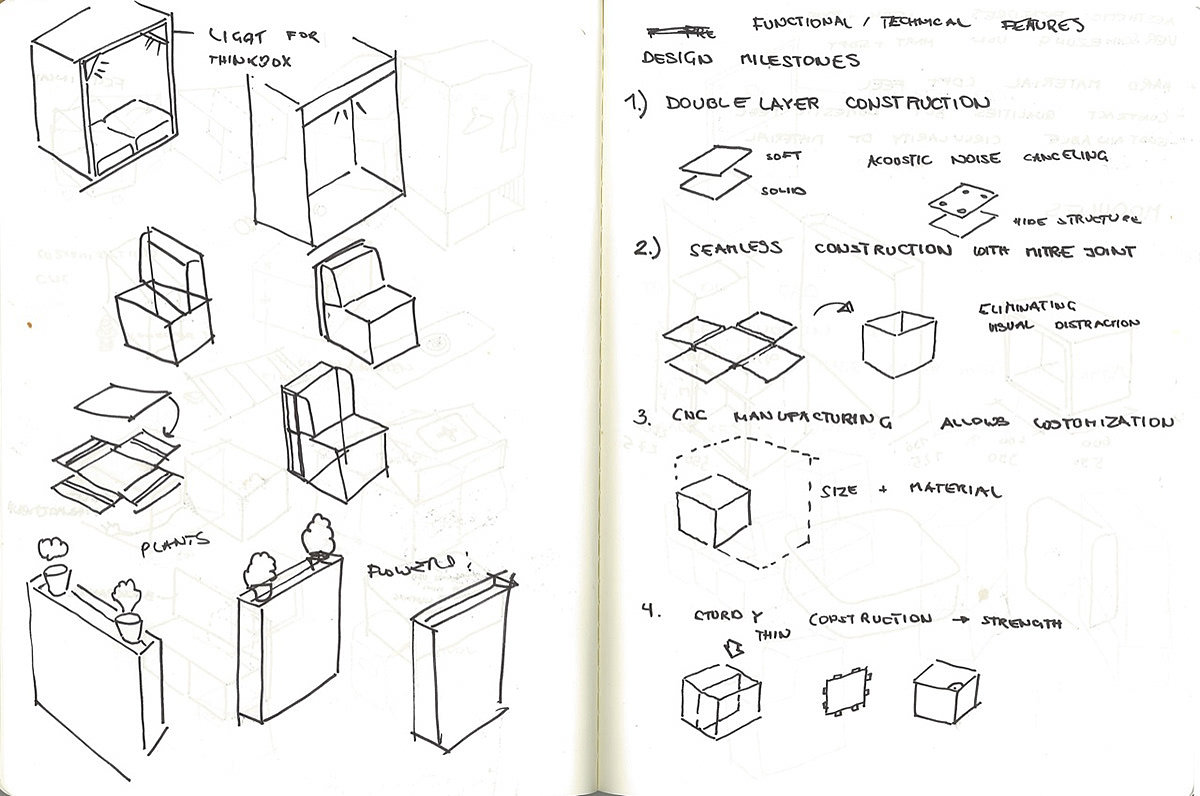 LIGHT FOR
THINKBOX
PLANTS
FLOWERS!
FUNCTIONAL / TECHNICAL FEATURES
DESIGN MILESTONES
1.) DOUBLE LAYER CONSTRUCTION
SOFT
SOLID
ACOUSTIC NOISE CANCELING
HIDE STRUCTURE
2.) SEAMLESS CONSTRUCTION WITH MITRE JOINT
ELIMINATING
VISUAL DISTRACTION
3. CNC MANUFACTURING ALLOWS COSTOMIZATION
SIZE + MATERIAL
4. STURDY CONSTRUCTION → STRENGTH
THIN